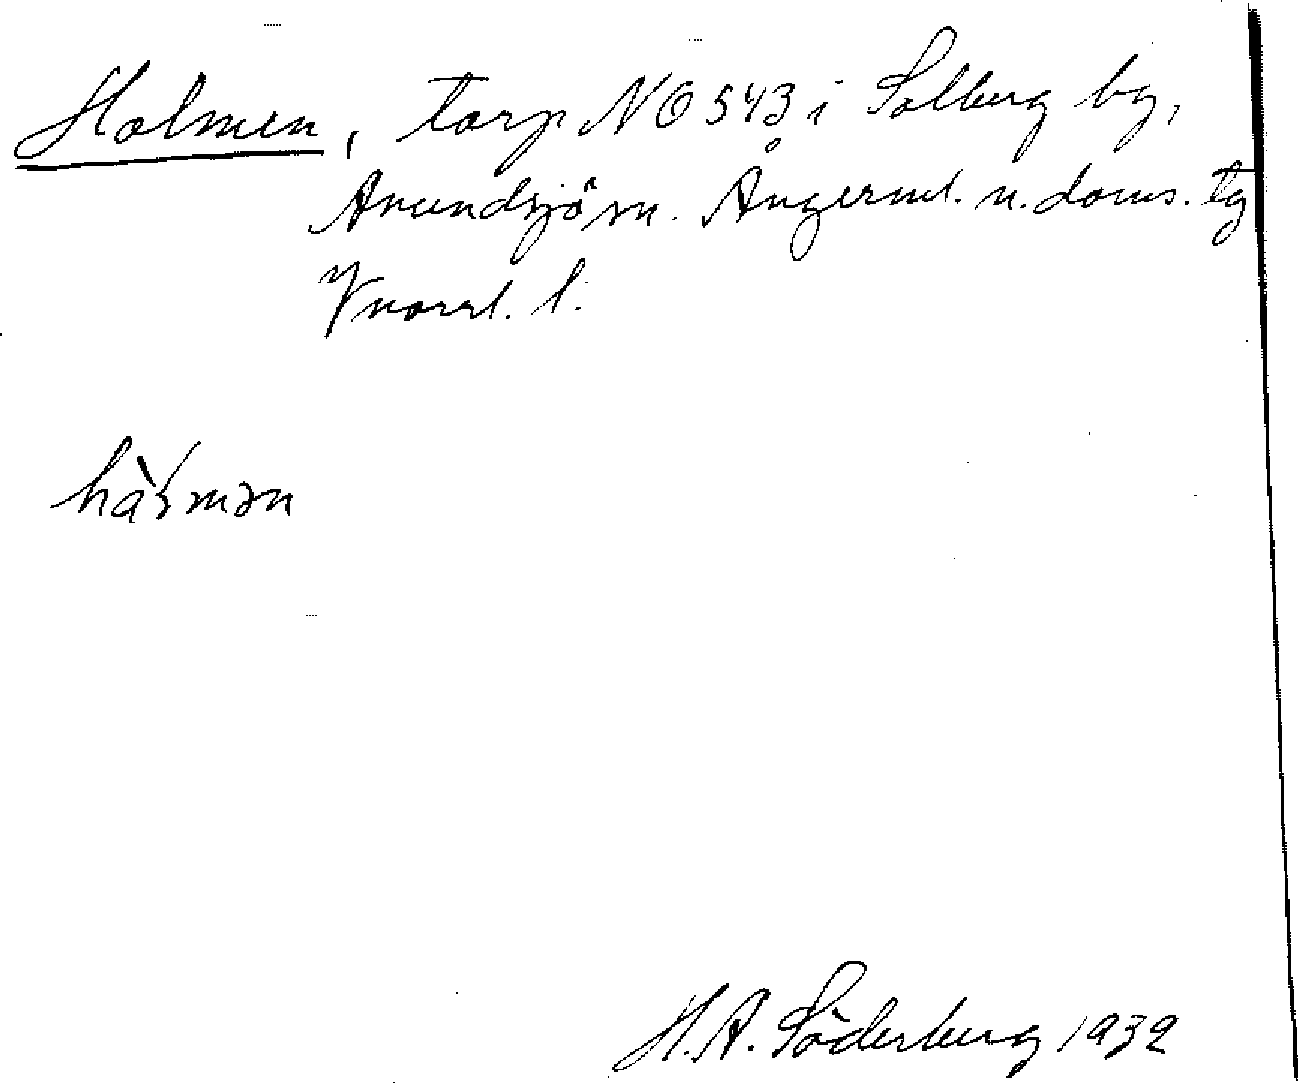 Holmen, torp NO 543 i Solberg by,
Anundsjö sn. Ångerml. n. doms. tg
Vnorrl. l.
hàɫmən
H.A. Söderberg 1932